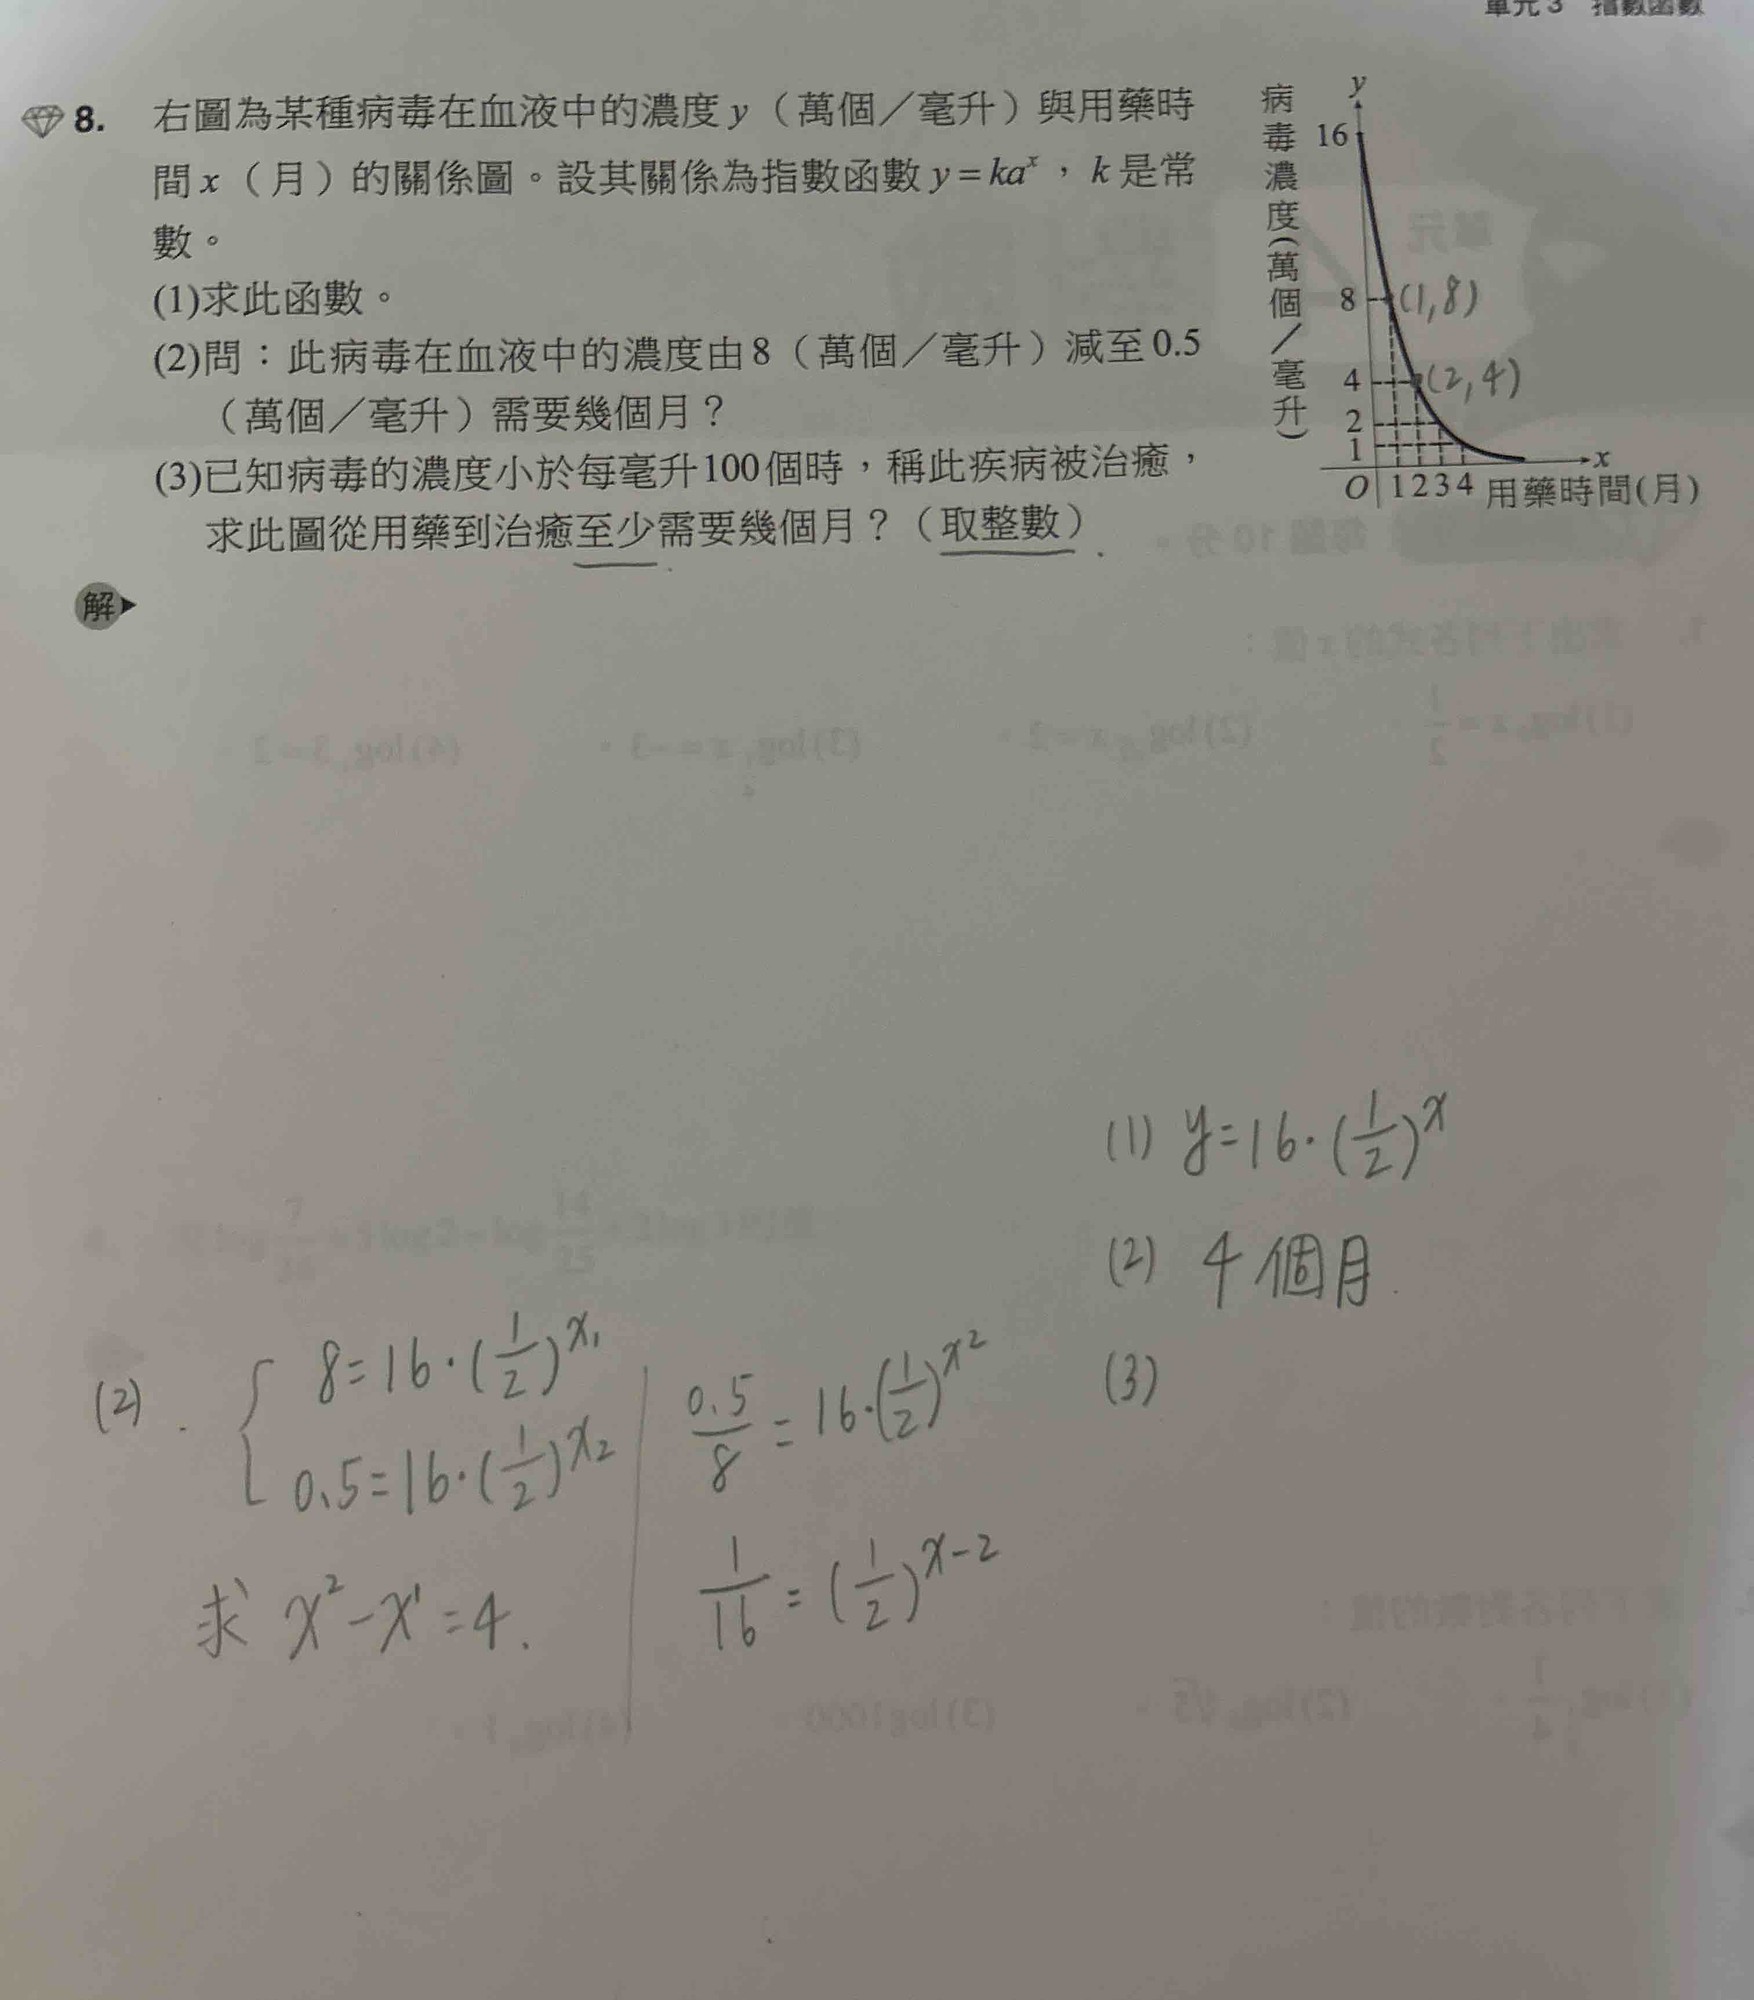 單元 3 指數函數
8. 右圖為某種病毒在血液中的濃度 y（萬個／毫升）與用藥時
間 x（月）的關係圖。設其關係為指數函數 y = kaˣ，k 是常
數。
(1)求此函數。
(2)問：此病毒在血液中的濃度由 8（萬個／毫升）減至 0.5
（萬個／毫升）需要幾個月？
(3)已知病毒的濃度小於每毫升 100 個時，稱此疾病被治癒，
求此圖從用藥到治癒至少需要幾個月？（取整數）
病毒濃度(萬個／毫升)
y
16
8 (1,8)
4 (2,4)
2
1
x
O 1 2 3 4 用藥時間(月)
解
(1) y=16·(1/2)^x
(2) 4個月.
(3)
(2). 8=16·(1/2)^x₁
0.5=16·(1/2)^x₂
求 x²-x¹=4.
0.5/8 = 16·(1/2)^x2
1/16 = (1/2)^x-2